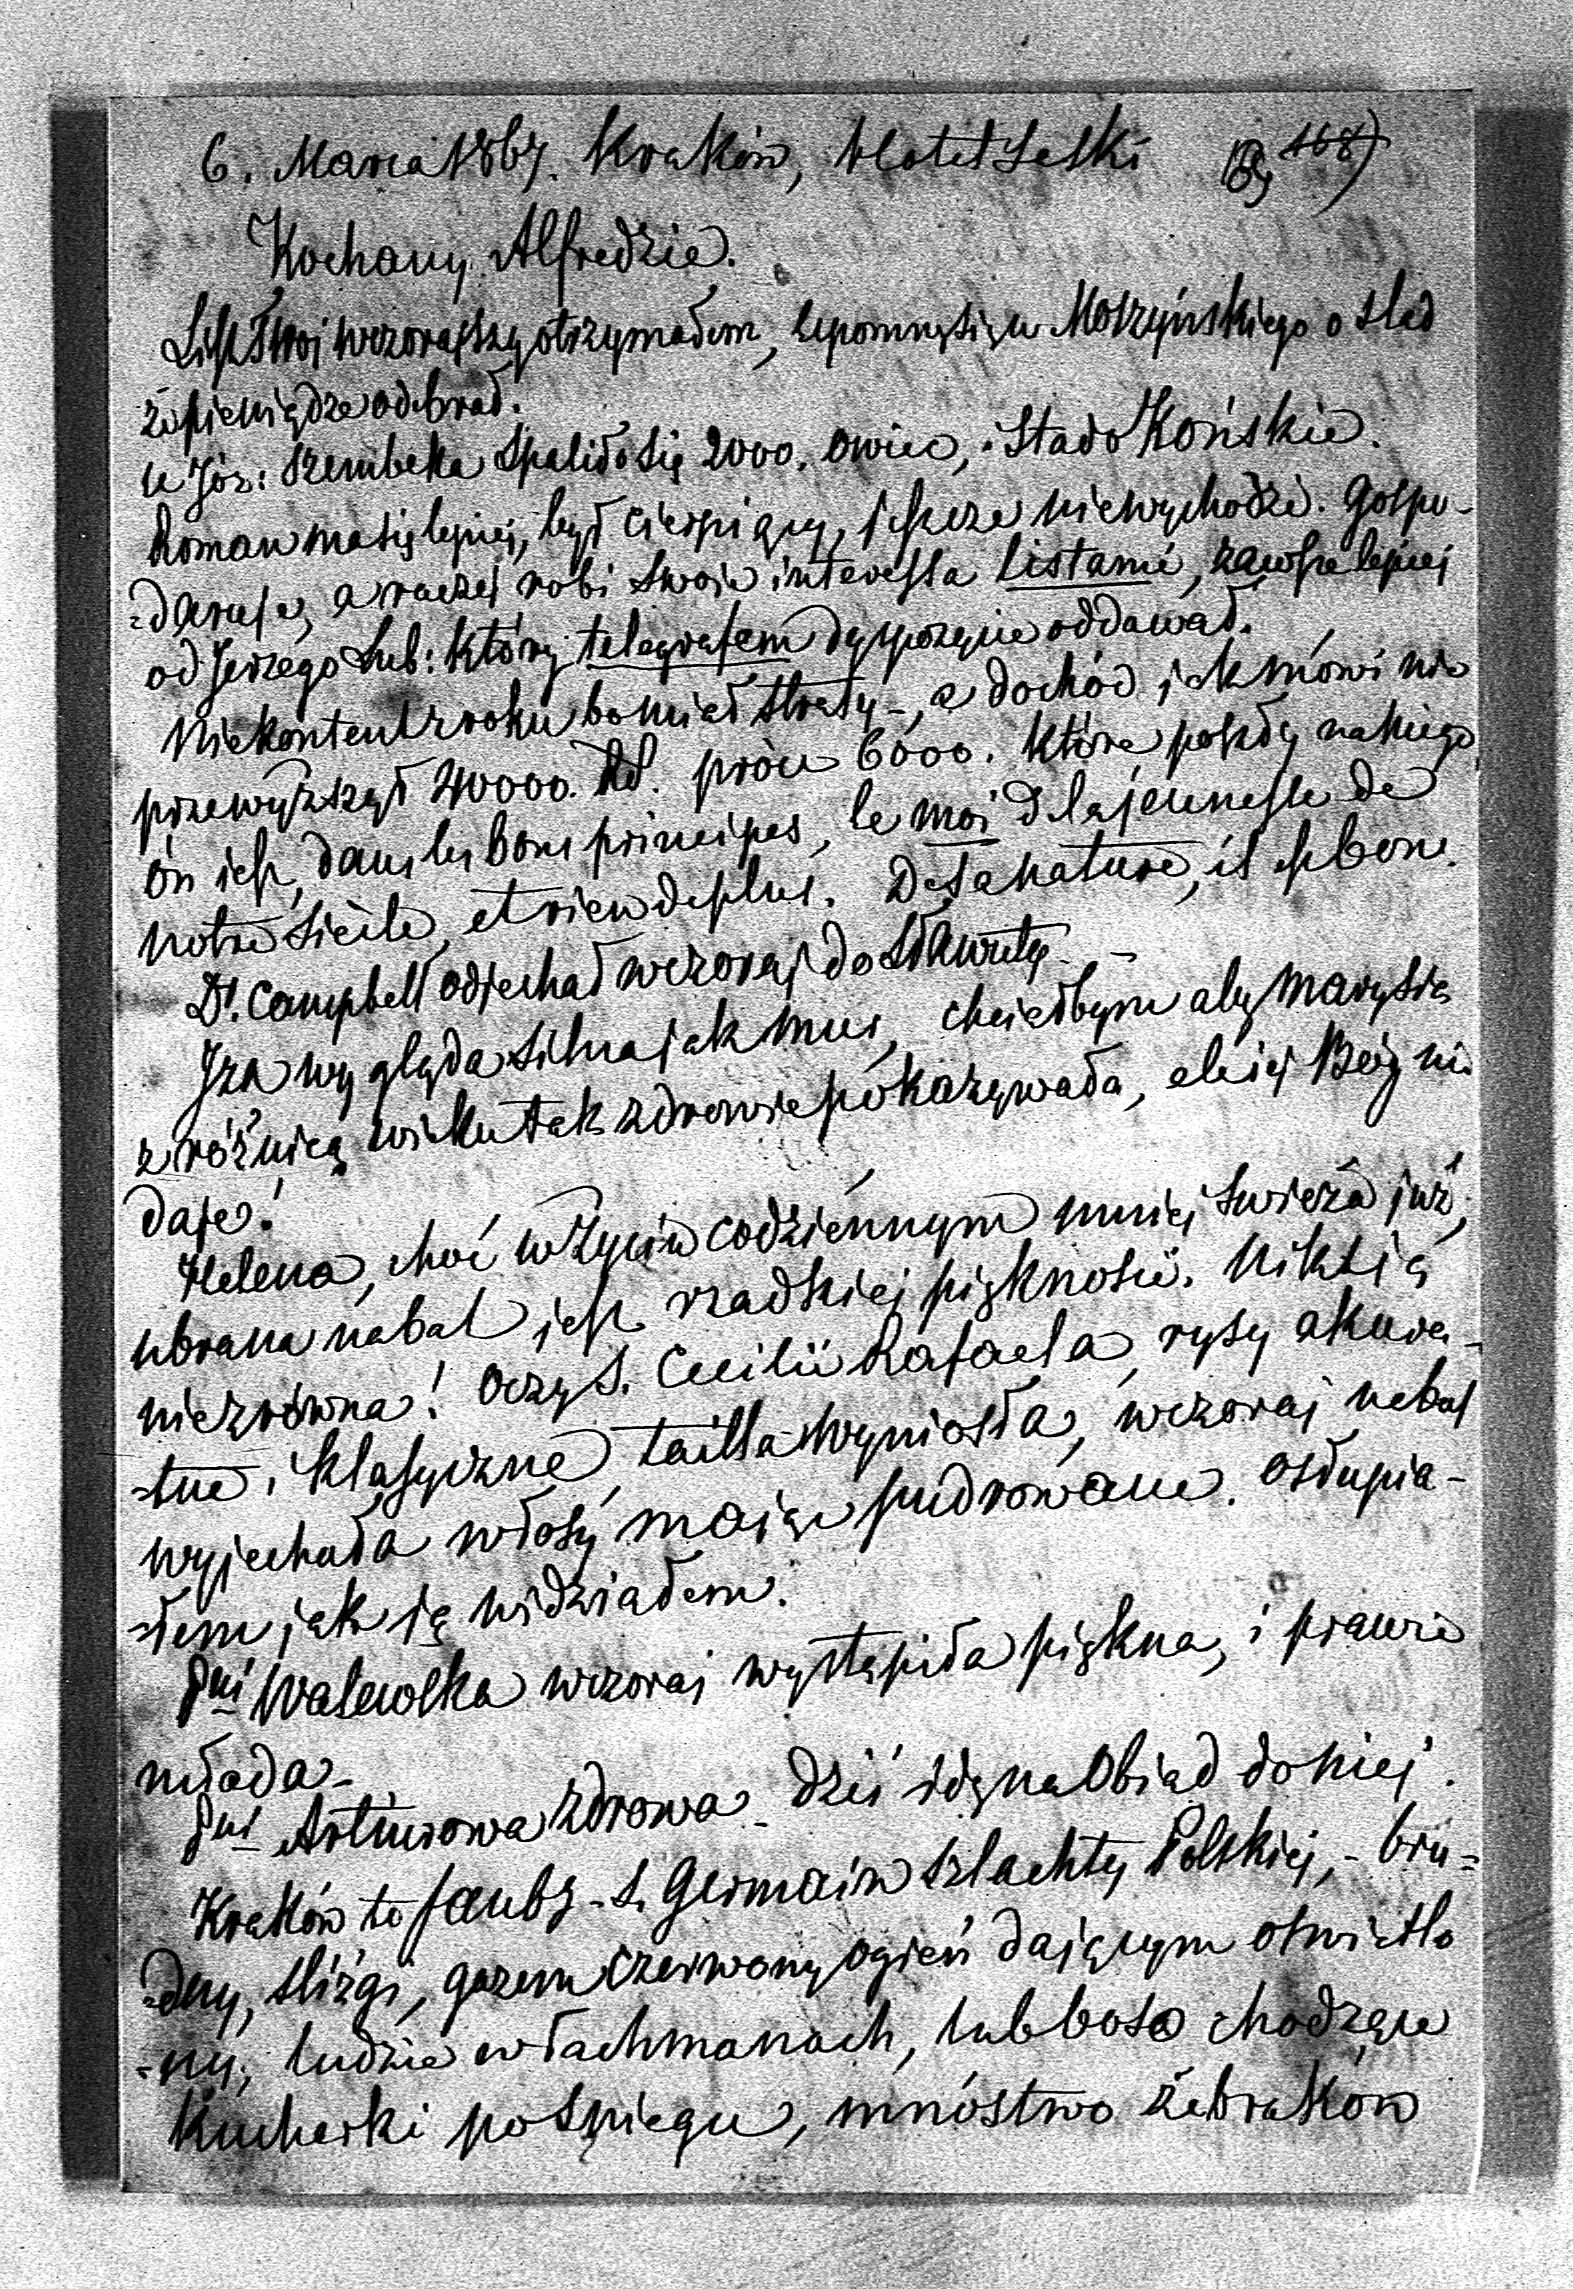 6. Marca 1867. Kraków, Hotel Saski 168)
Kochany Alfredzie.
List Twoj wczorajszy otrzymałem, upomnę się u Moszyńskiego o slad
że pieniądze odebrał.
u Józ: Szembeka Spaliło się 2000. owiec, i Stado Końskie.
Roman ma się lepiej, był cierpiący, jeszcze niewychodzi. Gospo-
=daruje, a raczej robi swoje interessa listami, zawsze lepiej
od Jerzego Lub: który telegrafem dyspozycie oddawał.
Niekontent z roku bo miał straty -, a dochód jak mówi nie
przewyższył 40000. Rs. prócz 6000. które poszły na niego
on jest, dans les bons principes, le moi d la jeunesse de
notre siècle, et rien de plus. De sa nature, il est bon.
Dr. Campbell odjechał wczoraj do Sławuty. -
Iza wygląda silna jak mur, chciałbym aby Marysia
z różnicą wieku tak zdrowie pokazywała, ale jej Bóg nie
daje!
Helena, choć w życiu codziennym mniej swieża już,
ubrana na bal jest rzadkiej piękności. Nikt ją
niezrówna! Oczy S. Cecilii Rafaela, rysy akura-
-tne, i klasyczne, tailla wyniosła, wczoraj na bal
wyjechała włosy mając pudrowane. Osłupia-
-łem jak ją widziałem.
Pni Walewska wczoraj wystąpiła piękna, i prawie
młoda -
Pni Arturowa zdrowa - Dziś idę na Obiad do niej.
Kraków to faubg - S. Germain szlachty Polskiej, - bru=
=dny, slizgi, gazem czerwony ogień dającym oswietlo
-ny, ludzie w łachmanach, lub boso chodzące
Kucharki po sniegu, mnóstwo żebraków